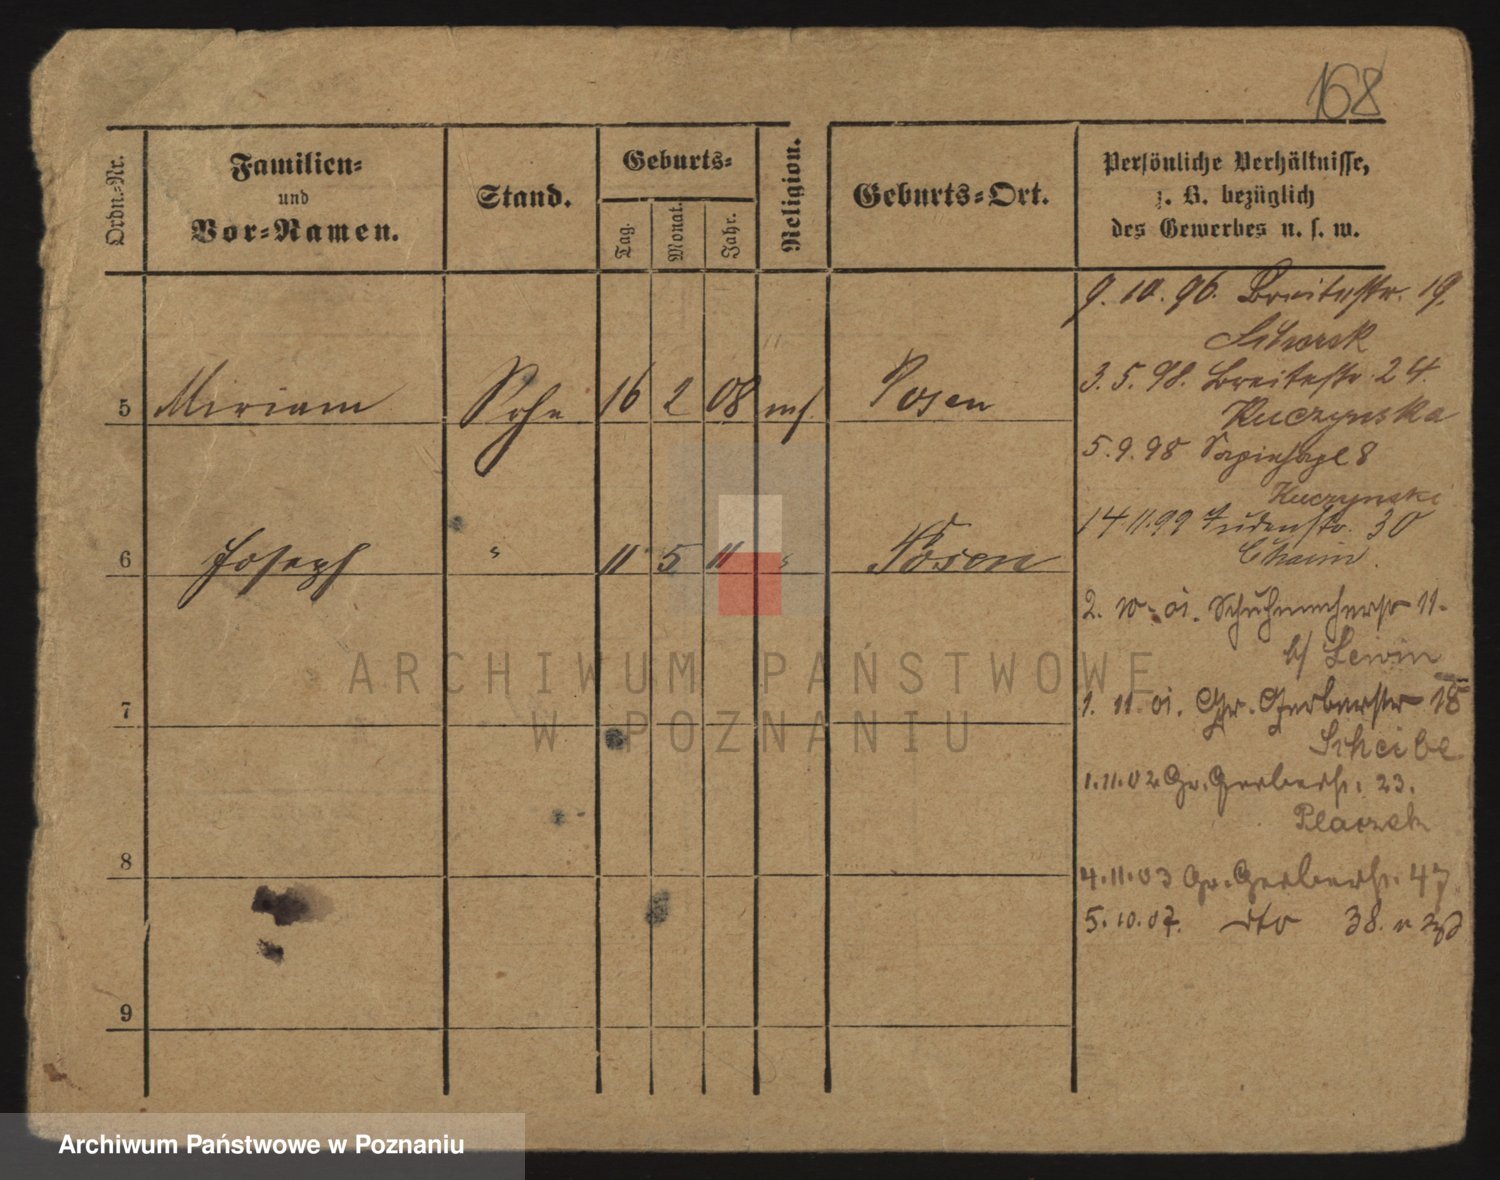 168
Ordn.-Nr.
Familien-
und
Vor-Namen.
Stand.
Geburts-
Tag.
Monat.
Jahr.
Religion.
Geburts-Ort.
Persönliche Verhältnisse,
z. B. bezüglich
des Gewerbes u. s. w.
5 Miriam Sohn 16 2 08 Posen
6 Joseph " 11 5 11 " Posen
7
8
9
9. 10. 96. Breitestr. 19.
3. 5. 98. Breitestr. 24.
Kuczynska
5. 9. 98 Sapiehapl 8
Kuczynski
14 11. 99 Judenstr. 30
Chaim.
2. 10. 01. Schuhmacherstr 11.
b/ Lewin
1. 11. 01. Gr. Gerberstr 18
Scheibe
1. 11. 02 Gr. Gerberstr. 23.
Placzek
4. 11. 03 Gr. Gerberstr. 47
5. 10. 07. dto 38.
ARCHIWUM PAŃSTWOWE
W POZNANIU
Archiwum Państwowe w Poznaniu